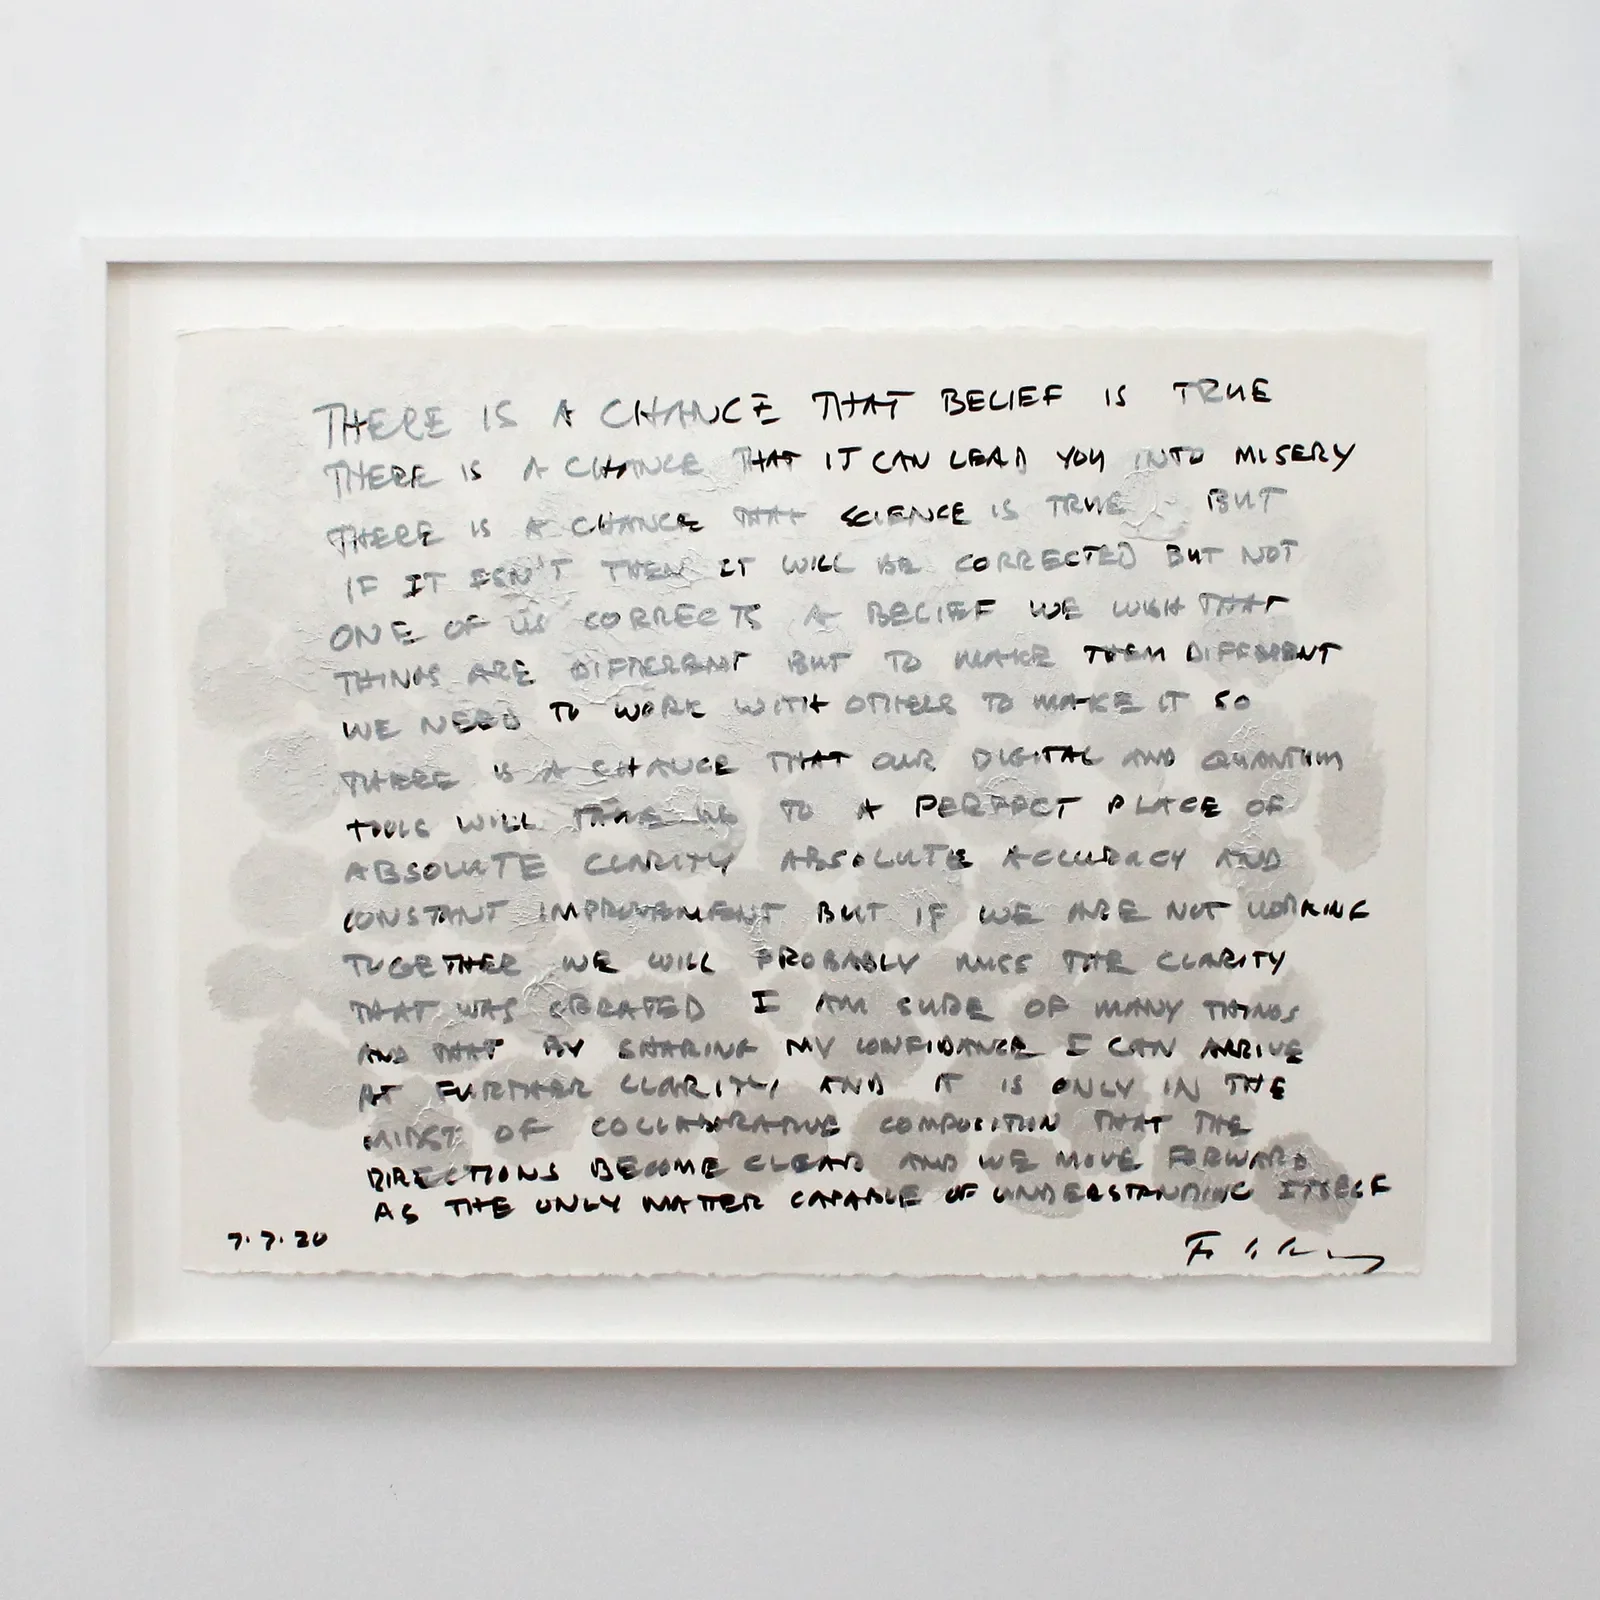 THERE IS A CHANCE THAT BELIEF IS TRUE
THERE IS A CHANCE THAT IT CAN LEAD YOU INTO MISERY
THERE IS A CHANCE THAT SCIENCE IS TRUE BUT
IF IT ISN'T THEN IT WILL BE CORRECTED BUT NOT
ONE OF US CORRECTS A BELIEF WE WISH THAT
THINGS ARE DIFFERENT BUT TO MAKE THEM DIFFERENT
WE NEED TO WORK WITH OTHERS TO MAKE IT SO
THERE IS A CHANCE THAT OUR DIGITAL AND QUANTUM
TOOLS WILL TAKE US TO A PERFECT PLACE OF
ABSOLUTE CLARITY ABSOLUTE ACCURACY AND
CONSTANT IMPROVEMENT BUT IF WE ARE NOT WORKING
TOGETHER WE WILL PROBABLY MISS THE CLARITY
THAT WAS CREATED I AM SURE OF MANY THINGS
AND THAT BY SHARING MY CONFIDANCE I CAN ARRIVE
AT FURTHER CLARITY AND IT IS ONLY IN THE
MIDST OF COLLABORATIVE COMPOSITION THAT THE
DIRECTIONS BECOME CLEAR AND WE MOVE FORWARD
AS THE ONLY MATTER CAPABLE OF UNDERSTANDING ITSELF
7.7.20